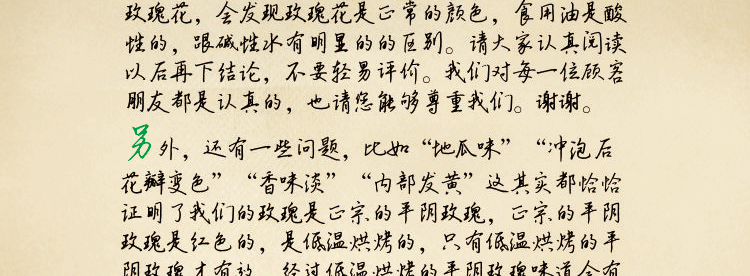 玫瑰花，会发现玫瑰花是正常的颜色，食用油是酸
性的，跟碱性水有明显的的区别。请大家认真阅读
以后再下结论，不要轻易评价。我们对每一位顾客
朋友都是认真的，也请您能够尊重我们。谢谢。
另外，还有一些问题，比如“地瓜味”“冲泡后
花瓣变色”“香味淡”“内部发黄”这其实都恰恰
证明了我们的玫瑰是正宗的平阴玫瑰，正宗的平阴
玫瑰是红色的，是低温烘烤的，只有低温烘烤的平
阴玫瑰才有这，经过低温烘烤的平阴玫瑰味道会有